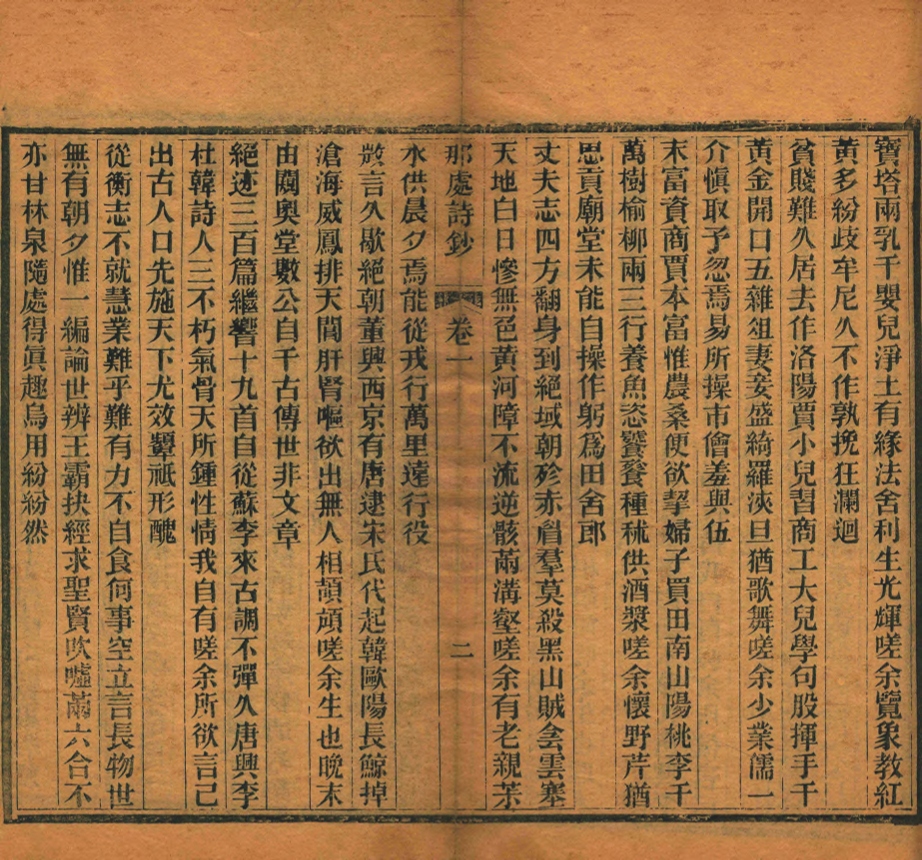 寶塔兩乳千嬰兒淨土有緣法舍利生光輝嗟余覽象教紅
黃多紛歧牟尼久不作孰挽狂瀾迴
貧賤難久居去作洛陽賈小兒習商工大兒學句股揮手千
黃金開口五雜俎妻妾盛綺羅浹旦猶歌舞嗟余少業儒一
介慎取予忽焉易所操市儈羞與伍
末富資商賈本富惟農桑便欲挈婦子買田南山陽桃李千
萬樹榆柳兩三行養魚恣饔飱種秫供酒漿嗟余懷野芹猶
思貢廟堂未能自操作躬爲田舍郎
丈夫志四方翻身到絕域朝殄赤眉羣莫殺黑山賊会雲塞
天地白日慘無色黃河障不流逆骸㒼溝壑嗟余有老親茶
那處詩鈔 卷一 二
水供晨夕焉能從戎行萬里遠行役
敳言久歇絕朝董興西京有唐逮宋氏代起韓歐陽長鯨掉
滄海威鳳排天閶肝腎嘔欲出無人相頡頏嗟余生也晚末
由闚奧堂數公自千古傳世非文章
絕迹三百篇繼響十九首自從蘇李來古調不彈久唐興李
杜韓詩人三不朽氣骨天所鍾性情我自有嗟余所欲言已
出古人口先施天下尤效顰祇形醜
從衡志不就慧業難乎難有力不自食何事空立言長物世
無有朝夕惟一編論世辨王霸抉經求聖賢吹噓㒼六合不
亦甘林泉隨處得眞趣烏用紛紛然